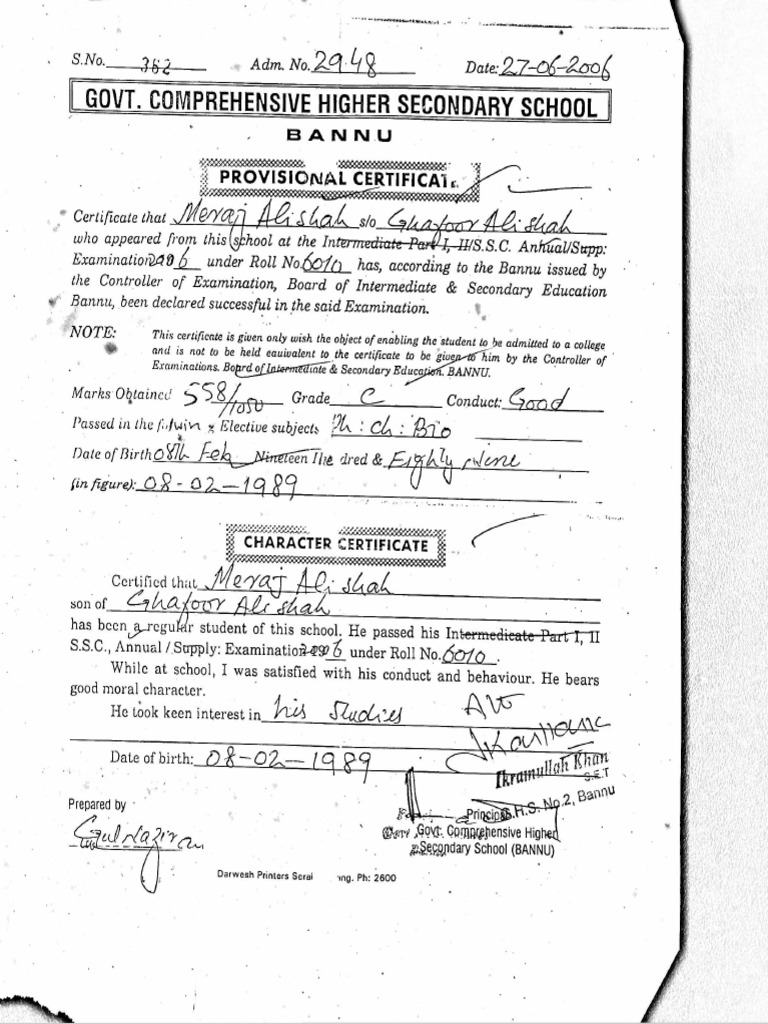 S.No. 362 Adm. No. 2948 Date: 27-06-2006
GOVT. COMPREHENSIVE HIGHER SECONDARY SCHOOL
BANNU
PROVISIONAL CERTIFICATE
Certificate that Meraj Ali shah s/o Ghafoor Ali shah
who appeared from this school at the Intermediate Part I, II/S.S.C. Annual/Supp:
Examination 2006 under Roll No. 6010 has, according to the Bannu issued by
the Controller of Examination, Board of Intermediate & Secondary Education
Bannu, been declared successful in the said Examination.
NOTE: This certificate is given only wish the object of enabling the student to be admitted to a college
and is not to be held eauivalent to the certificate to be given to him by the Controller of
Examinations. Board of Intermediate & Secondary Education. BANNU.
Marks Obtained 558/1050 Grade C Conduct: Good
Passed in the Elective subjects Ph : Ch : Bio
Date of Birth 08th Feb Nineteen Hundred & Eighty Nine
(in figure): 08-02-1989
CHARACTER CERTIFICATE
Certified that Meraj Ali shah
son of Ghafoor Ali shah
has been a regular student of this school. He passed his Intermedicate Part I, II
S.S.C., Annual / Supply: Examination 2006 under Roll No. 6010.
While at school, I was satisfied with his conduct and behaviour. He bears
good moral character.
He took keen interest in his studies
Date of birth: 08-02-1989
Ikramullah Khan
S.E.T
G.H.S. No.2, Bannu
Prepared by
Principal
Govt. Comprehensive Higher
Secondary School (BANNU)
Darwesh Printers Ph: 2600